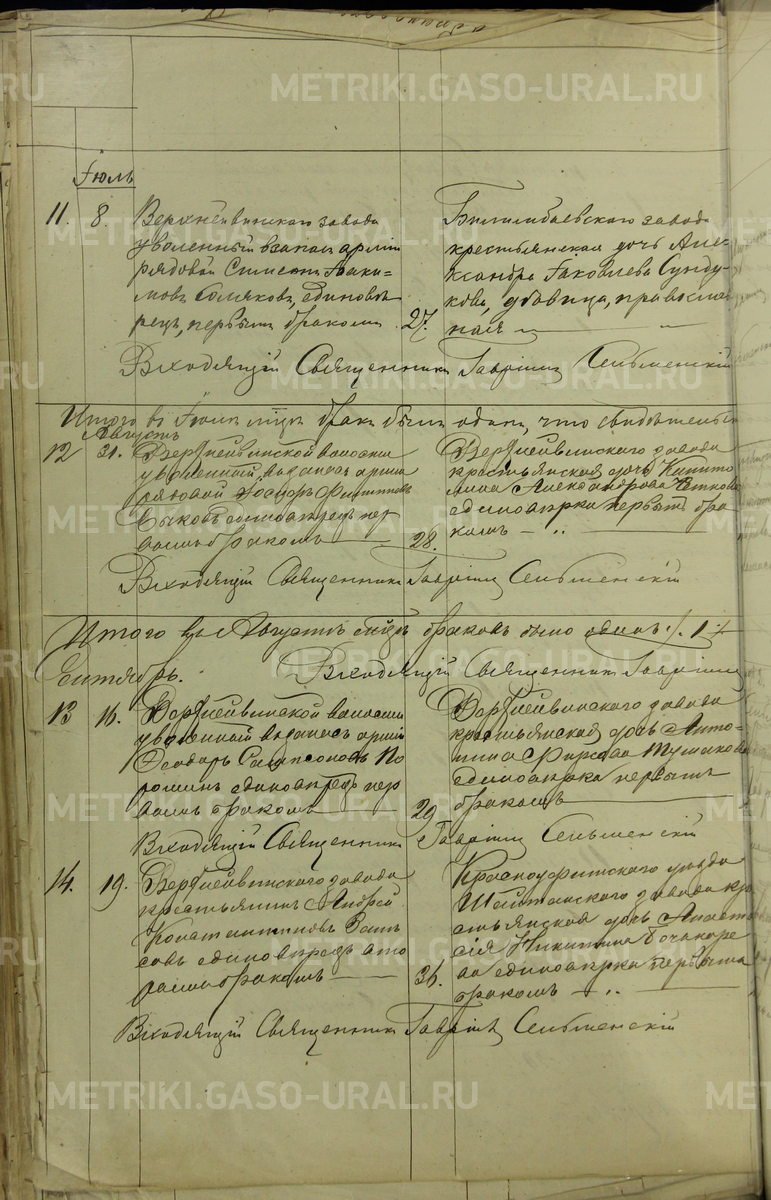 METRIKI.GASO-URAL.RU
Іюль
11. 8. Верхнейвинскаго завода
уволенный в запасъ арміи
рядовой Симеонъ Іоаки-
мовъ единовѣ-
рецъ, первымъ бракомъ 27.
Билимбаевскаго завода
крестьянская дочь Але-
ксандра Іаковлева Сунду-
кова, дѣвица, православ-
ная
Входящій Священникъ Гавріилъ Сельменскій
Итого в Іюлѣ мѣсяцѣ бракъ былъ одинъ, что свидѣтельст
Августъ
12 31. Верхнейвинской волости
уволенный въ запасъ арміи
рядовой Филипповъ
Быковъ единовѣрецъ пер
вымъ бракомъ 28.
Верхнейвинскаго завода
крестьянская дочь Капито
лина Александрова
единовѣрка первымъ бра-
комъ
Входящій Священникъ Гавріилъ Сельменскій
Итого въ Августѣ мѣсяцѣ браковъ было одинъ /. 1 /.
Сентябрь. Входящій Священникъ Гавріилъ
13 16. Верхнейвинской волости
уволенный въ запасъ арміи
Ѳеодоръ Сампсоновъ По
рошинъ единовѣрецъ пер
вымъ бракомъ 29
Верхнейвинскаго завода
крестьянская дочь Анто-
нина Фирсова
единовѣрка первымъ
бракомъ
Входящій Священникъ Гавріилъ Сельменскій
14. 19. Верхнейвинскаго завода
крестьянинъ Андрей
Константиновъ
единовѣрецъ вто
рымъ бракомъ 36.
Красноуфимскаго уѣзда
Шайтанскаго завода кре
стьянская дочь Анаста
сія Никитина Бочкаре
ва единовѣрка первымъ
бракомъ
Входящій Священникъ Гавріилъ Сельменскій
METRIKI.GASO-URAL.RU